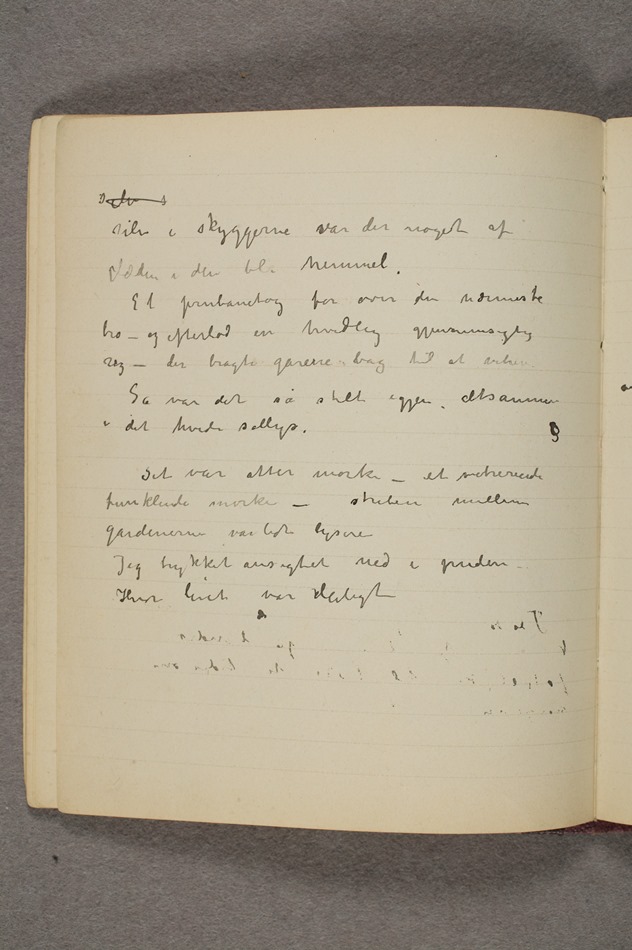 selv i skyggerne var der noget af
glæden i den blå himmel.
Et jernbanetog for over den nærmeste
bro – og efterlod en hvidlig gjennemsigtig
røg – der bragte garene bag til at vibrere
Så var det så stilt igjen. altsammen
i det hvide sollys.
Det var atter mørke – et vibrerende
funklende mørke – striben mellem
gardinerne var lidt lysere
Jeg trykket ansigtet ned i puden
Hvor livet var deiligt